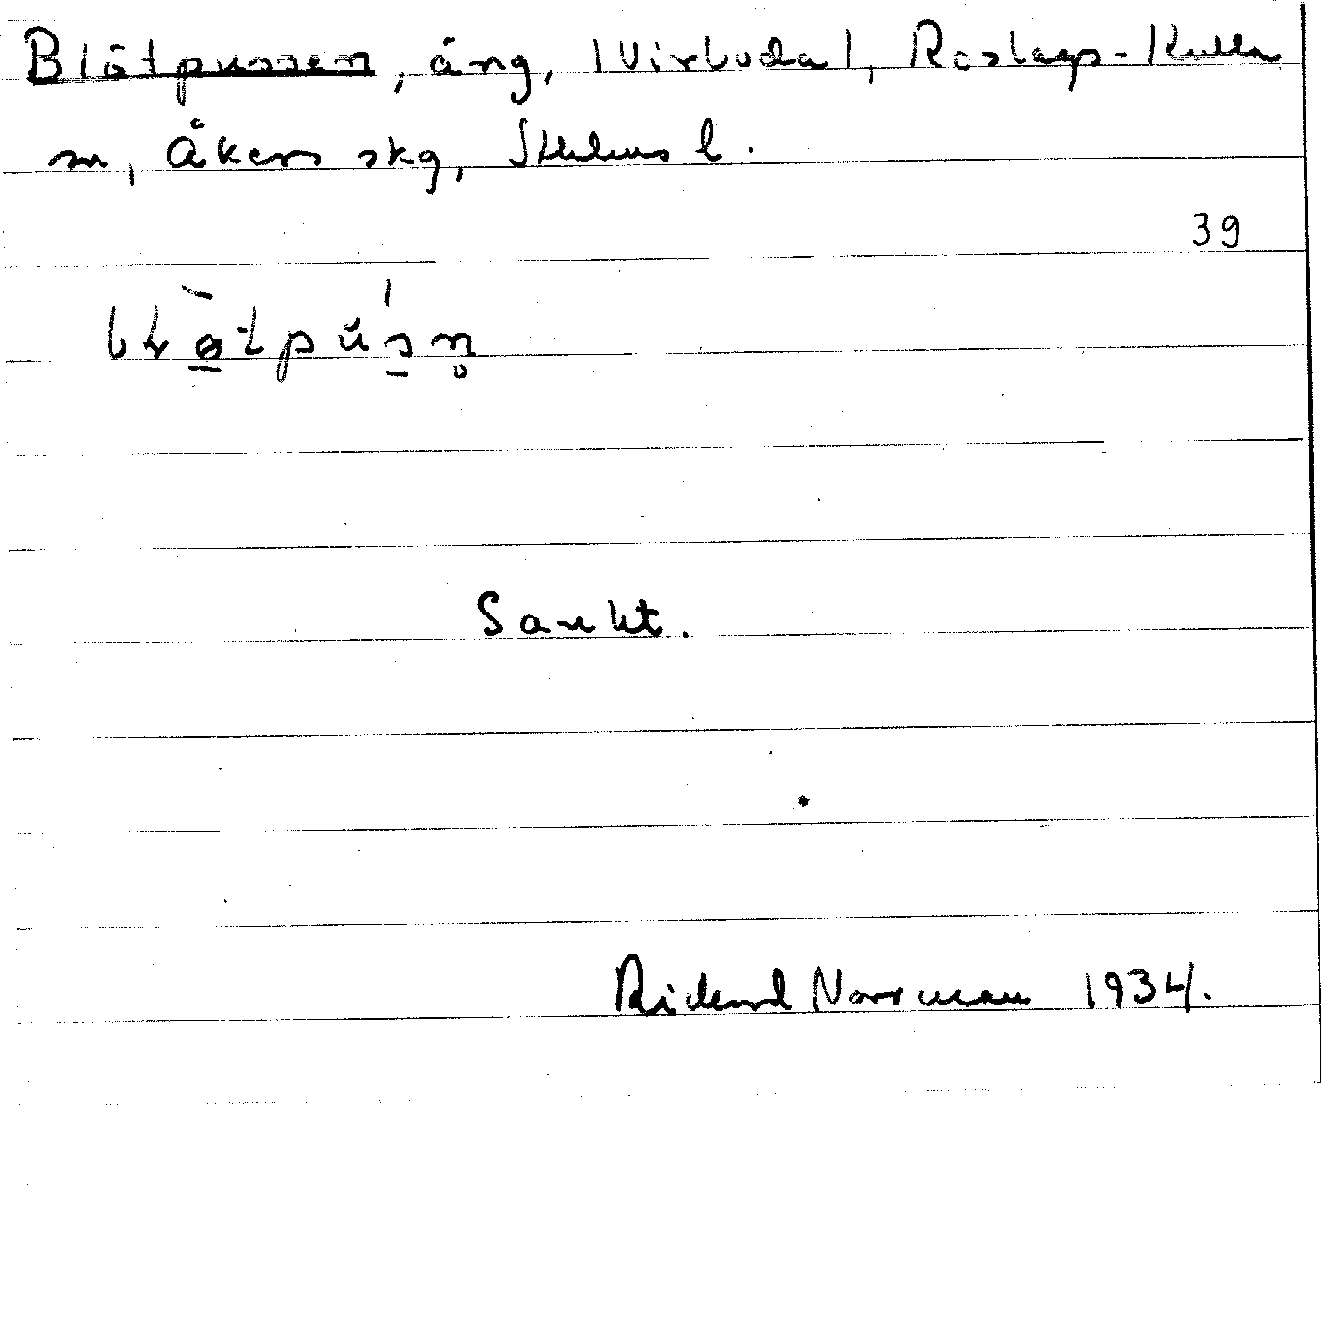 Blötpussen, äng, (Wirboda), Roslags-Kulla
sn, Åkers skg, Sthlms l.
39
Sankt.
Rickard Norrman 1934.